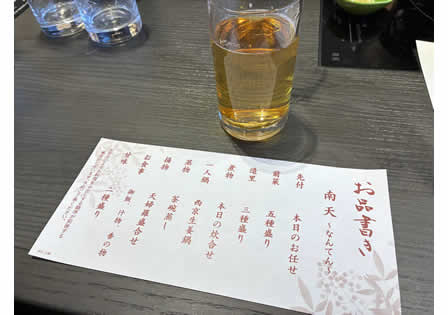 お品書き
南天 ～なんてん～
先付 本日のお任せ
前菜 五種盛り
造里 三種盛り
煮物 本日の炊合せ
一人鍋 西京生姜鍋
蒸物 茶碗蒸し
揚物 天婦羅盛合せ
お食事 御飯、汁物、香の物
甘味 一種盛り